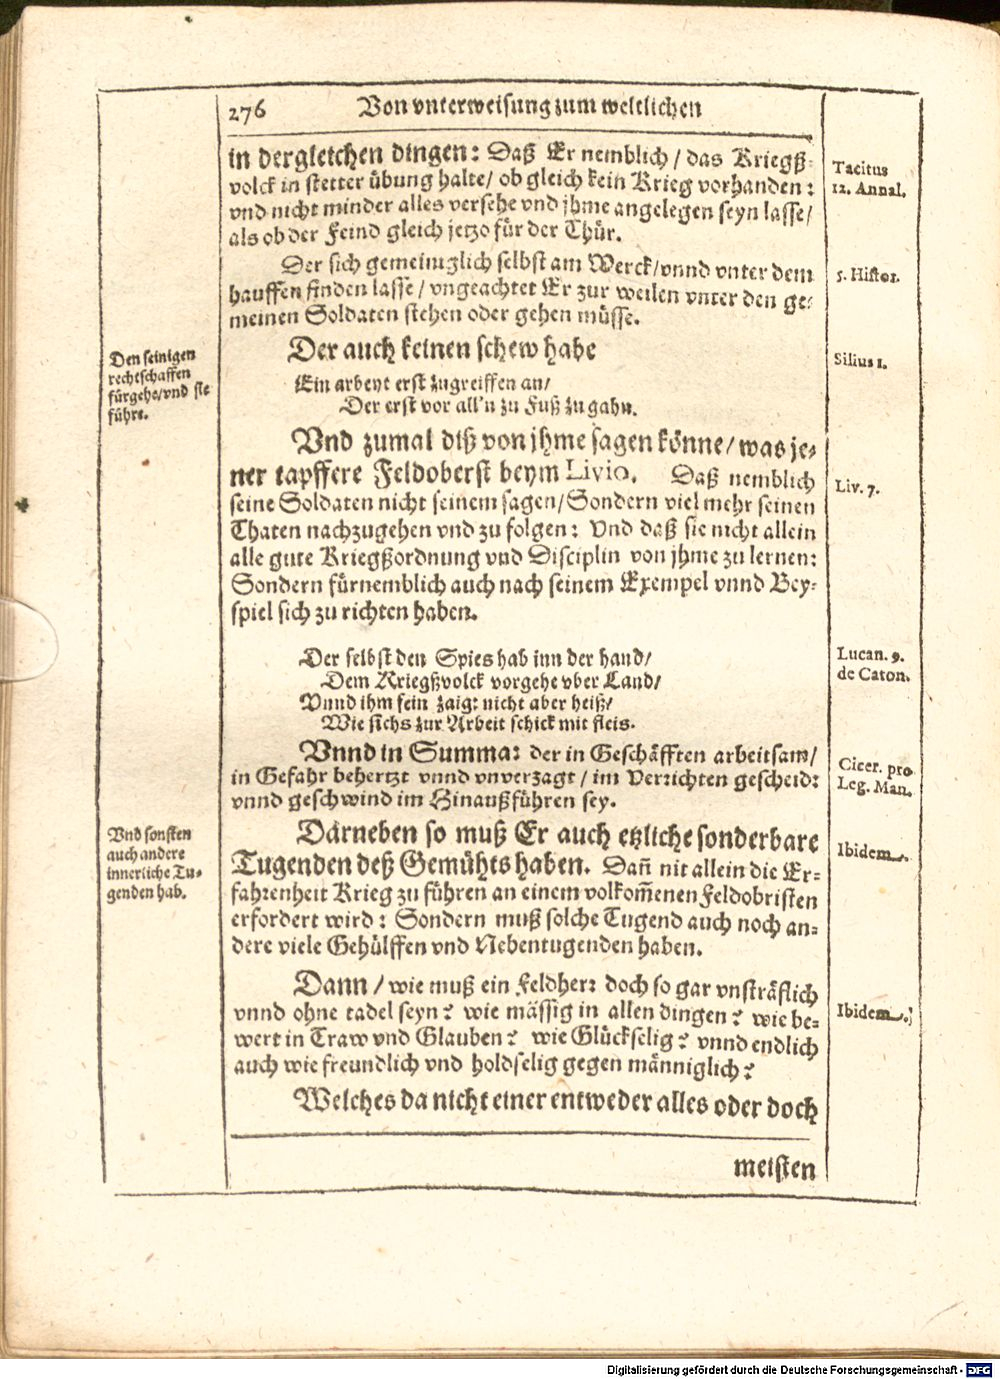 276 Von vnterweisung zum weltlichen
in dergleichen dingen: Daß Er nemblich / das Kriegß-
volck in stetter übung halte/ ob gleich kein Krieg vorhanden:
vnd nicht minder alles versehe vnd jhme angelegen seyn lasse/
als ob der Feind gleich jetzo für der Thür.
Tacitus
12. Annal.
Der sich gemeiniglich selbst am Werck/vnnd vnter dem
hauffen finden lasse / vngeachtet Er zur weilen vnter den ge-
meinen Soldaten stehen oder gehen müsse.
5. Histor.
Der auch keinen schew habe
Ein arbeyt erst zugreiffen an/
Der erst vor all'n zu Fuß zu gahn.
Silius 1.
Den seinigen
rechtschaffen
fürgehe/vnd sie
führe.
Vnd zumal diß von jhme sagen könne/ was je-
ner tapffere Feldoberst beym Livio. Daß nemblich
seine Soldaten nicht seinem sagen/Sondern viel mehr seinen
Thaten nachzugehen vnd zu folgen: Vnd daß sie nicht allein
alle gute Kriegßordnung vnd Disciplin von jhme zu lernen:
Sondern fürnemblich auch nach seinem Exempel vnnd Bey-
spiel sich zu richten haben.
Liv. 7.
Der selbst den Spies hab inn der hand/
Dem Kriegßvolck vorgehe vber Land/
Vnnd ihm fein zaig: nicht aber heiß/
Wie sichs zur Arbeit schick mit fleis.
Lucan. 9.
de Caton.
Vnnd in Summa: der in Geschäfften arbeitsam/
in Gefahr behertzt vnnd vnverzagt / im Verrichten gescheid:
vnnd geschwind im Hinaußführen sey.
Cicer. pro
Leg. Man.
Darneben so muß Er auch etzliche sonderbare
Tugenden deß Gemühts haben. Dañ nit allein die Er-
fahrenheit Krieg zu führen an einem volkom̃enen Feldobristen
erfordert wird: Sondern muß solche Tugend auch noch an-
dere viele Gehülffen vnd Nebentugenden haben.
Ibidem.
Vnd sonsten
auch andere
innerliche Tu-
genden hab.
Dann / wie muß ein Feldherr doch so gar vnsträflich
vnnd ohne tadel seyn? wie mässig in allen dingen? wie be-
wert in Traw vnd Glauben? wie Glückselig? vnnd endlich
auch wie freundlich vnd holdselig gegen männiglich?
Ibidem.
Welches da nicht einer entweder alles oder doch
meisten
Digitalisierung gefördert durch die Deutsche Forschungsgemeinschaft - DFG